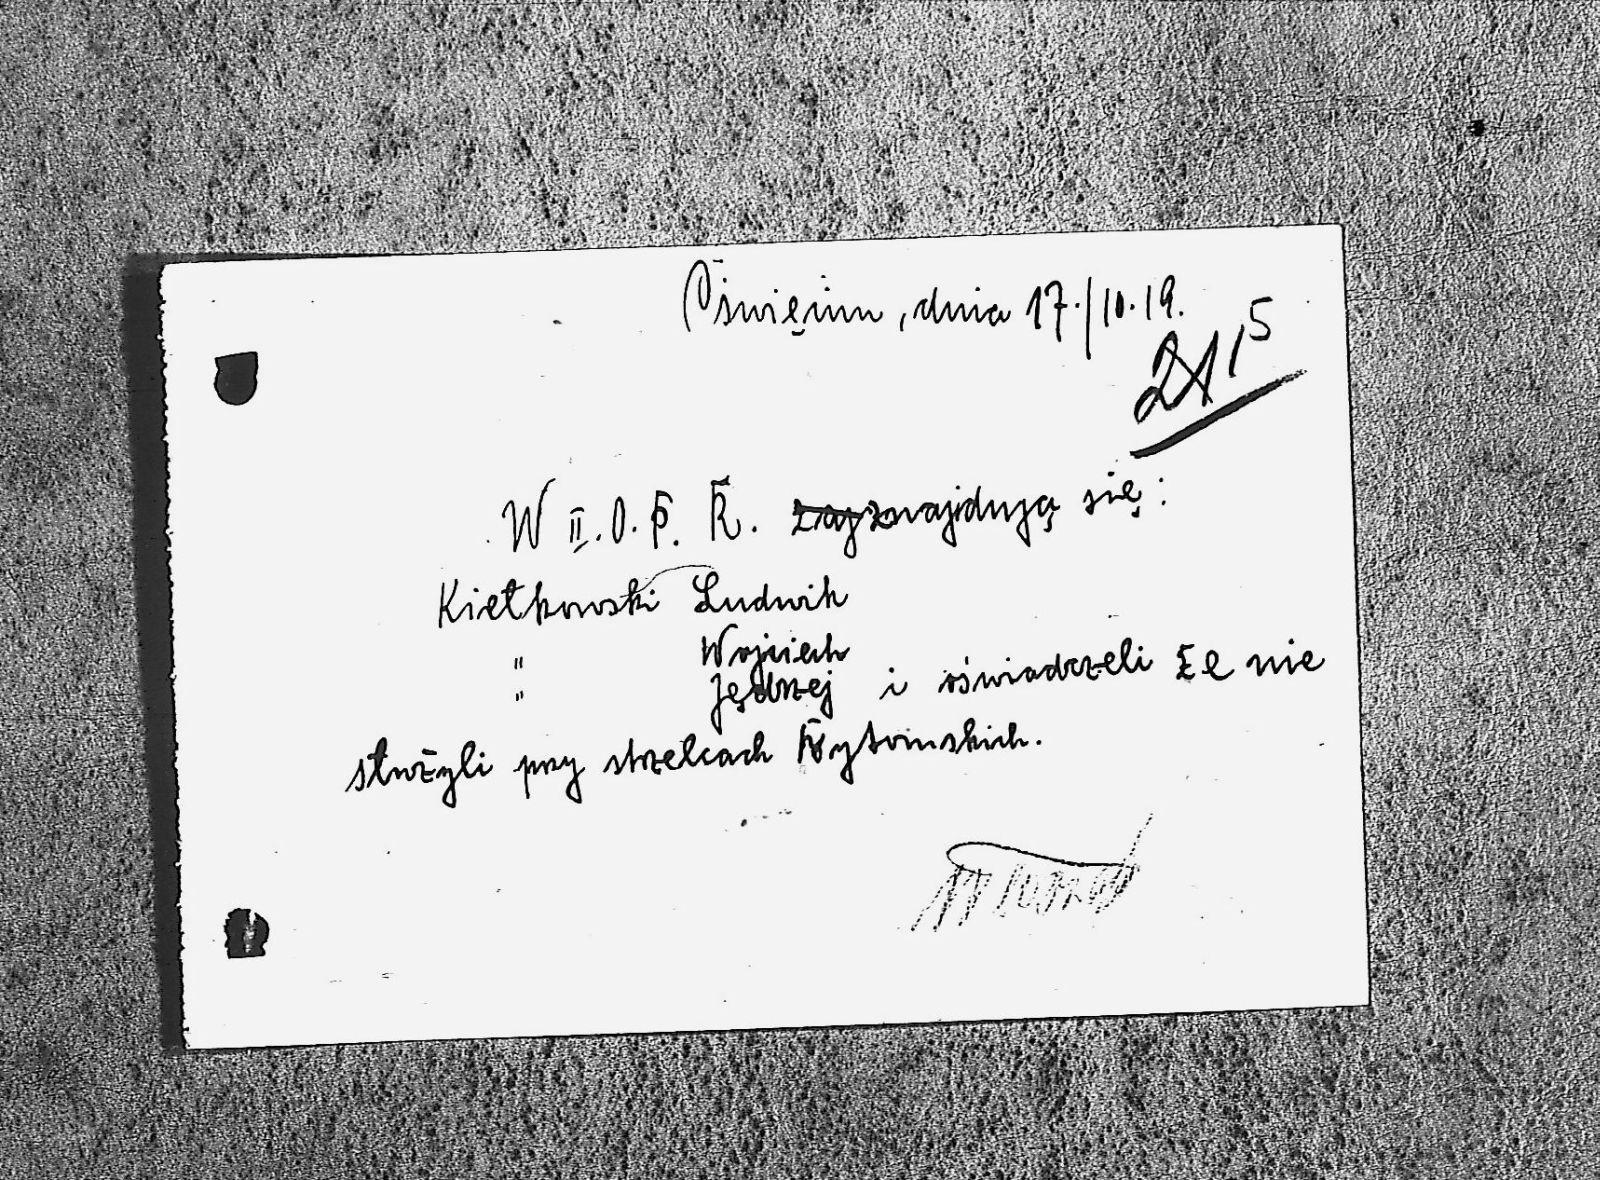 Oświęcim, dnia 17./10.19.
W II. O. P. R. znajdują się:
Kiełkowski Ludwik
" Wojciech
" Jędrzej i oświadczeli że nie
służyli przy strzelcach Bytomskich.